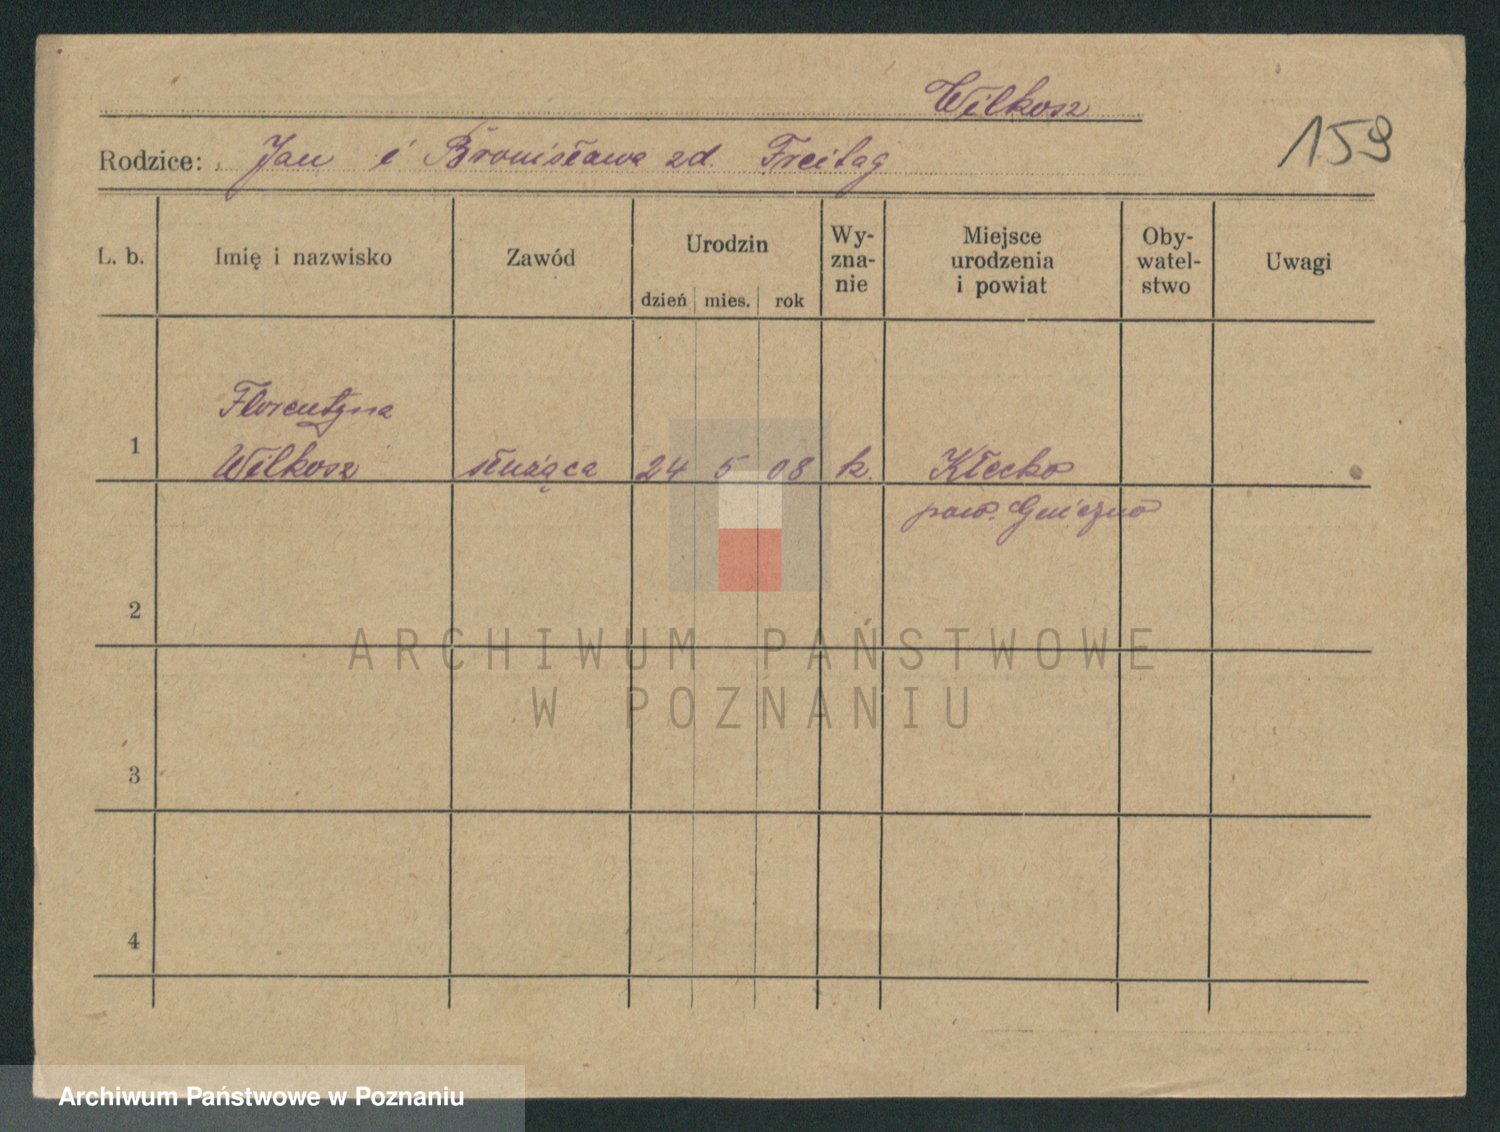 Wilkosz
Rodzice: Jan i Bronisława zd. Freitag
159
L. b. Imię i nazwisko Zawód Urodzin Wy-zna-nie Miejsce urodzenia i powiat Oby-watel-stwo Uwagi
dzień mies. rok
Florentyna
1 Wilkosz służąca 24 5 08 k. Kłecko
pow. Gniezno
2
ARCHIWUM PAŃSTWOWE
W POZNANIU
3
4
Archiwum Państwowe w Poznaniu